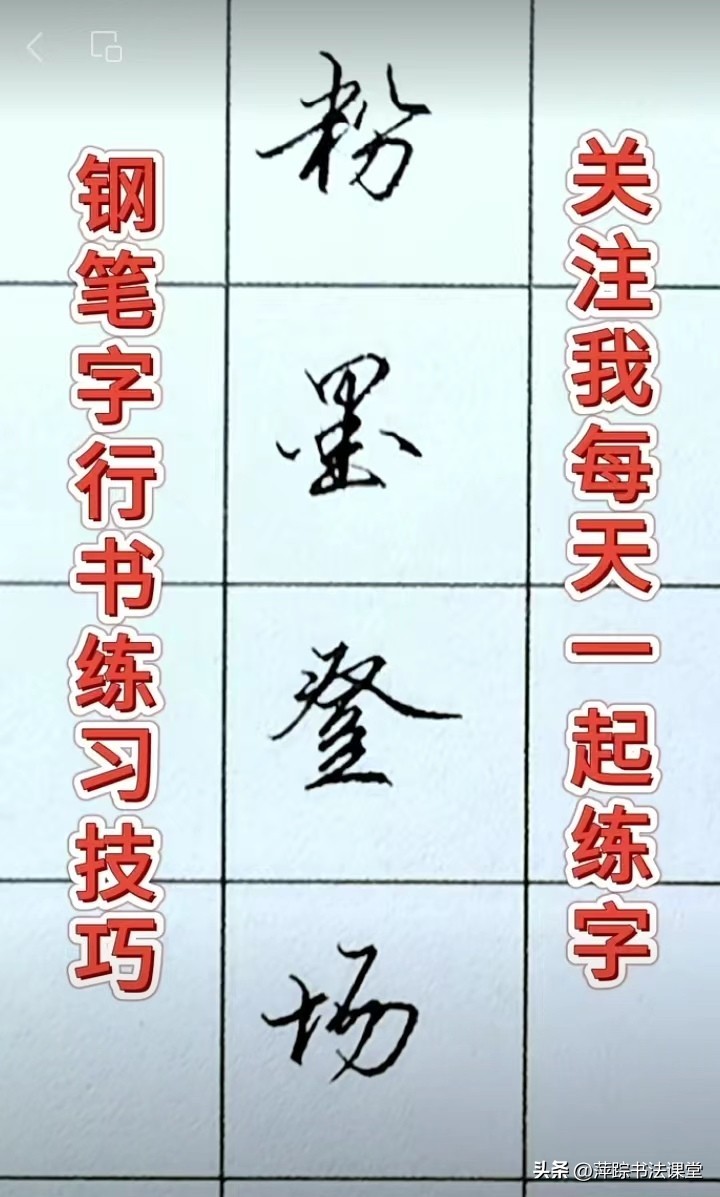 关注我每天一起练字
粉墨登场
钢笔字行书练习技巧
头条 @萍踪书法课堂